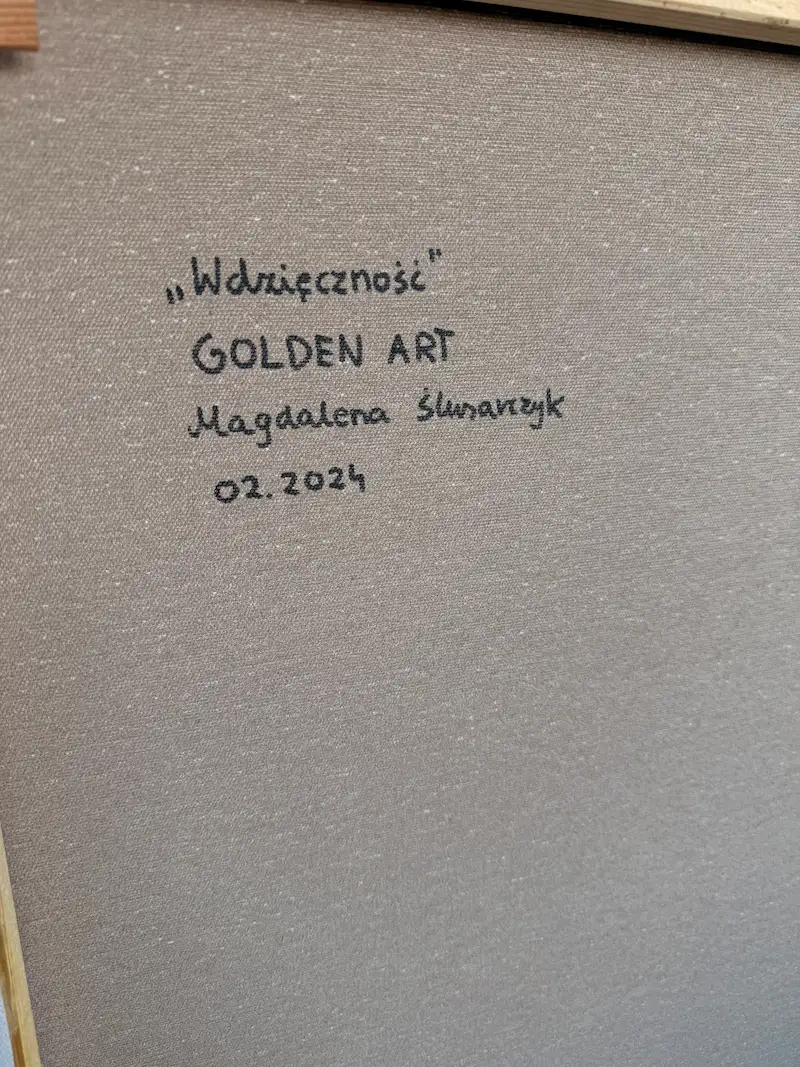 „Wdzięczność”
GOLDEN ART
Magdalena Ślusarczyk
02.2024